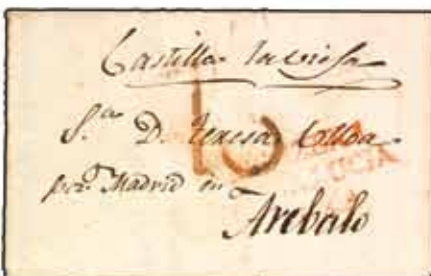 Castilla la vieja
S.ra D. Teresa Ulloa
por Madrid en
Arebalo